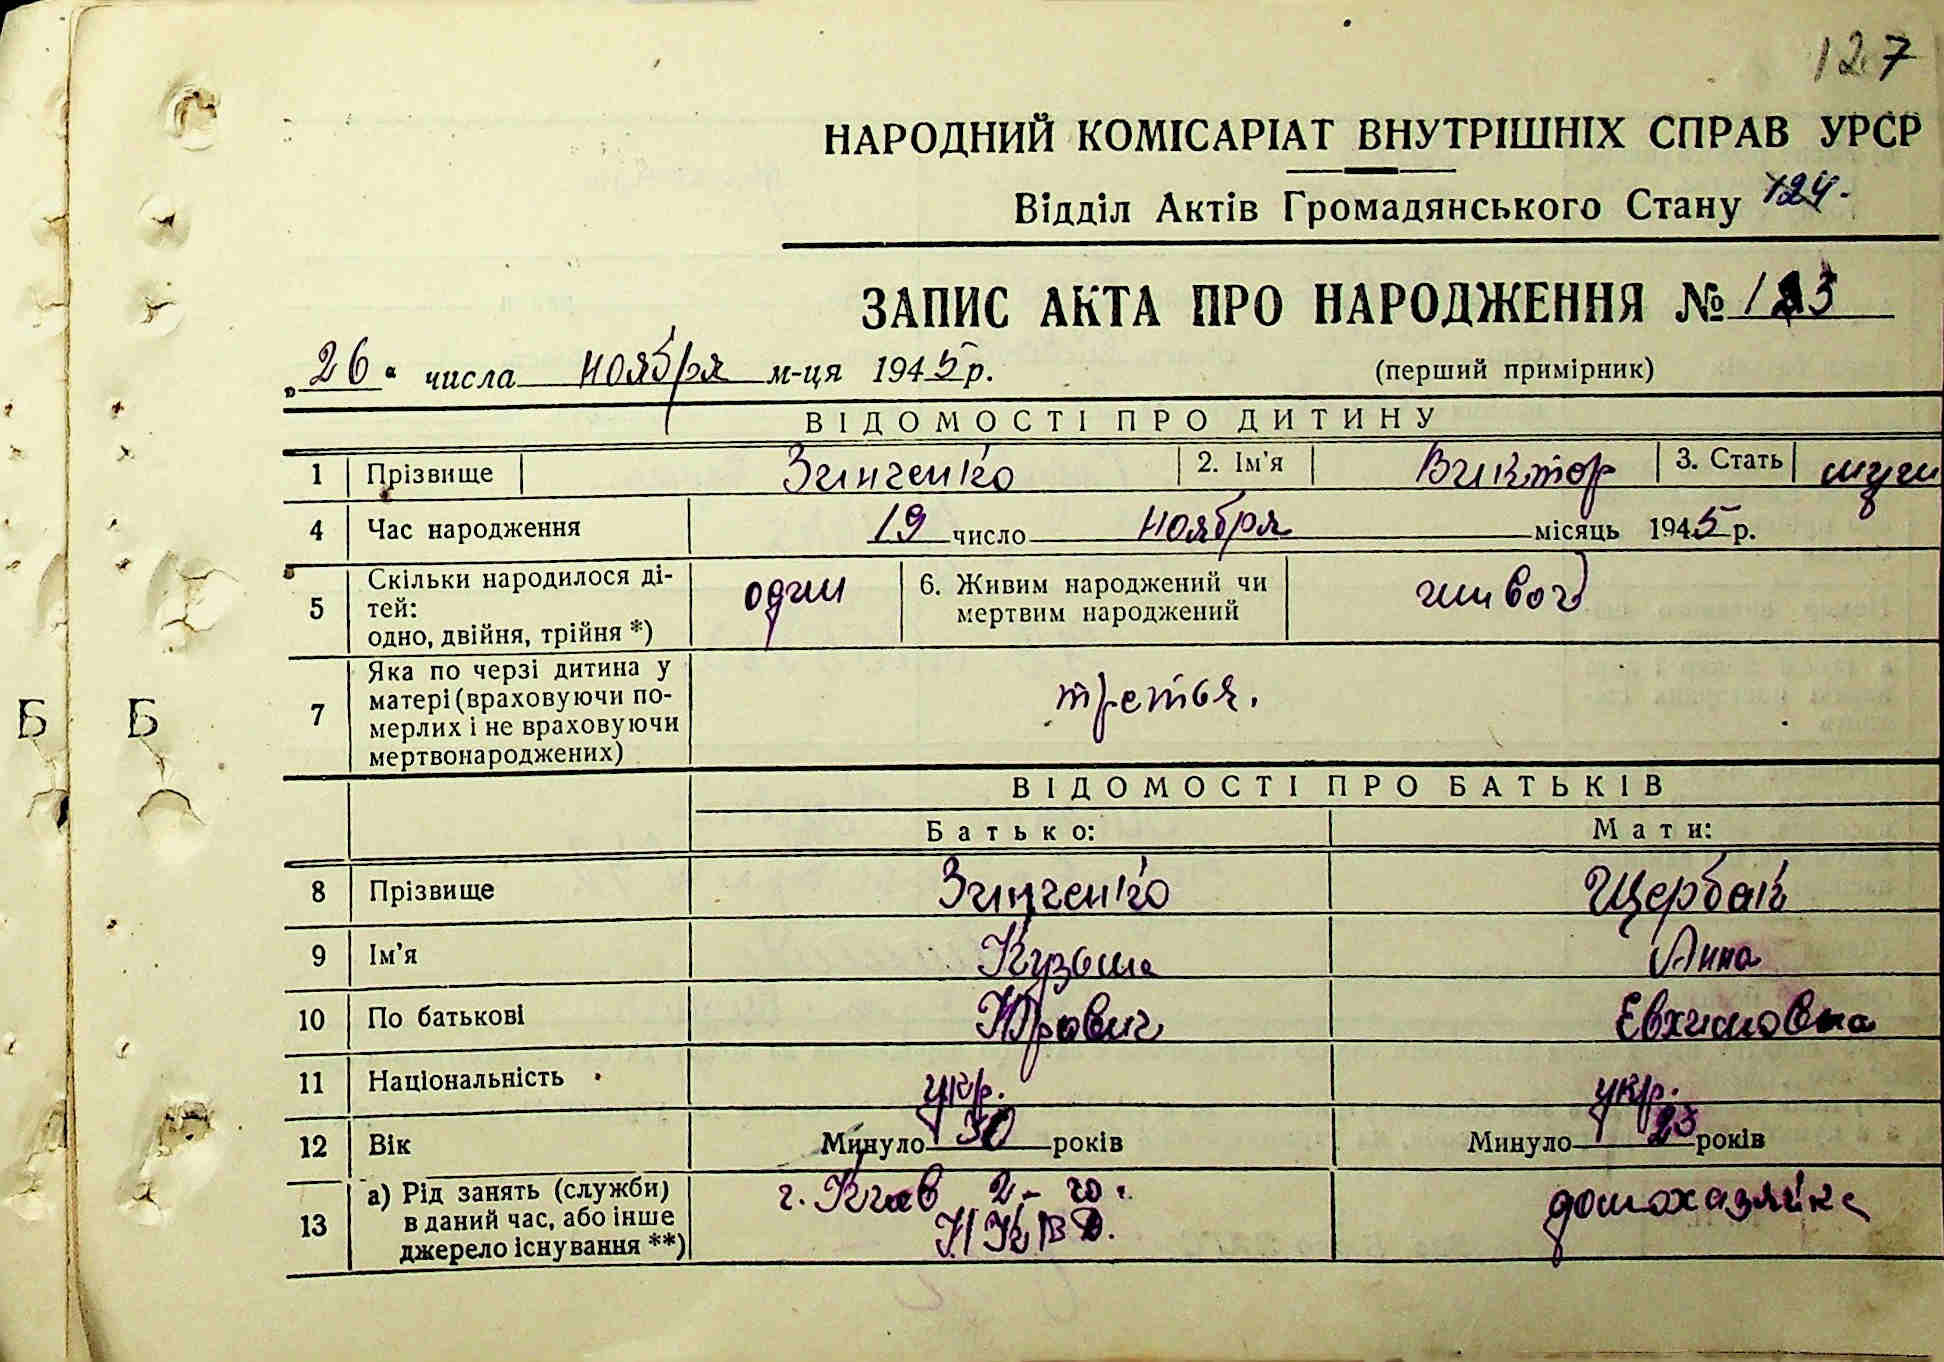 127
НАРОДНИЙ КОМІСАРІАТ ВНУТРІШНІХ СПРАВ УРСР
Відділ Актів Громадянського Стану 124.
ЗАПИС АКТА ПРО НАРОДЖЕННЯ № 123
„26“ числа ноября м-ця 1945 р. (перший примірник)
ВІДОМОСТІ ПРО ДИТИНУ
1 Прізвище Зинченко 2. Ім'я Виктор 3. Стать
4 Час народження 19 число ноября місяць 1945 р.
5 Скільки народилося ді-
тей:
одно, двійня, трійня *) один 6. Живим народжений чи
мертвим народжений живой
7 Яка по черзі дитина у
матері (враховуючи по-
мерлих і не враховуючи
мертвонароджених) третья.
ВІДОМОСТІ ПРО БАТЬКІВ
Батько: Мати:
8 Прізвище Зинченко Щербак
9 Ім'я Кузьма Анна
10 По батькові Юрович Евхимовна
11 Національність укр. укр.
12 Вік Минуло 30 років Минуло 23 років
13 а) Рід занять (служби)
в даний час, або інше
джерело існування **) г. Киев
НКВД. домохазяйка
Б Б